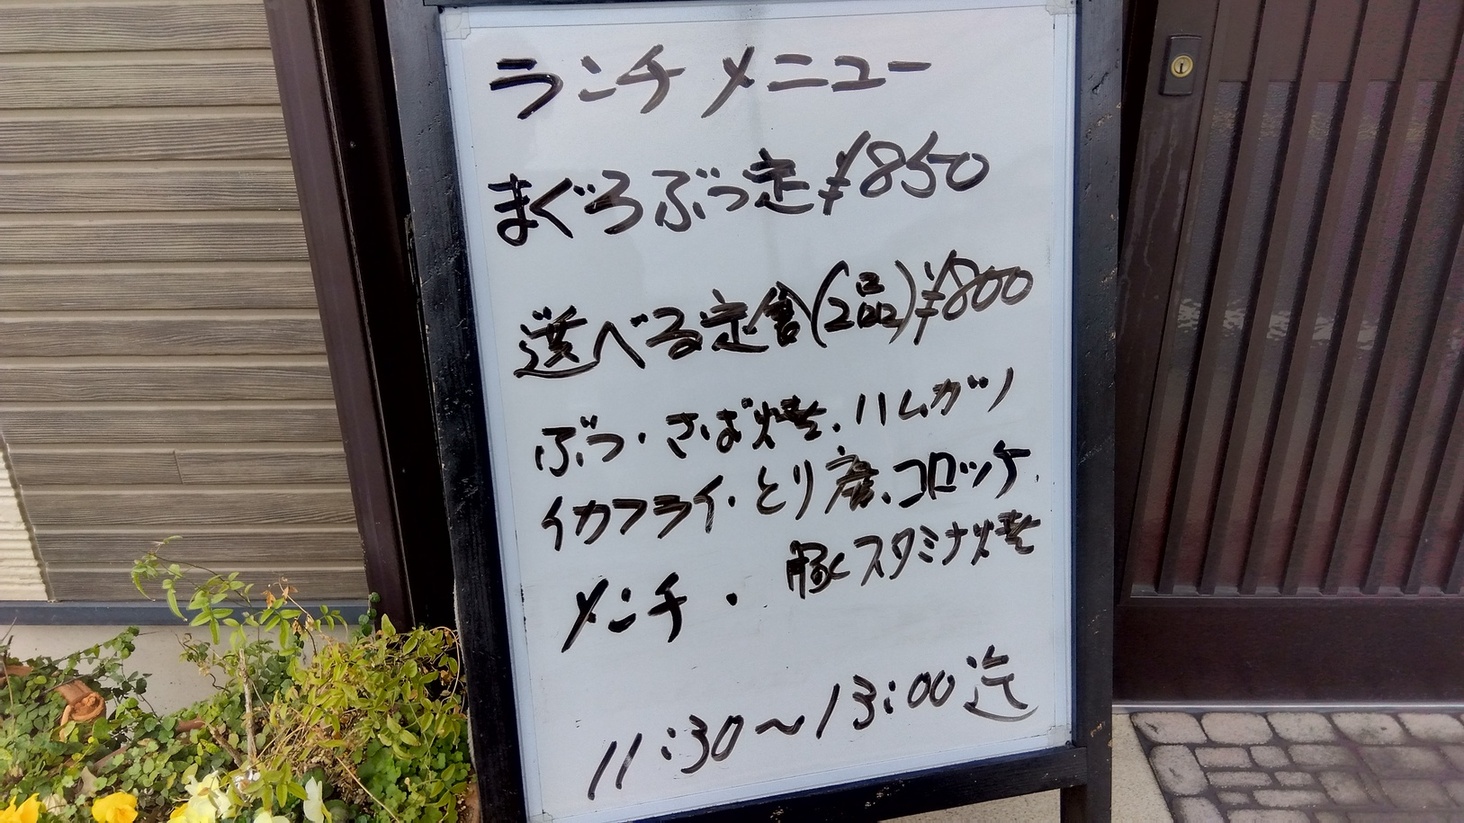 ランチメニュー
まぐろぶつ定¥850
選べる定食(2品)¥800
ぶつ・さば焼・ハムカツ
イカフライ・とり唐・コロッケ・
メンチ・豚スタミナ焼
11:30~13:00迄